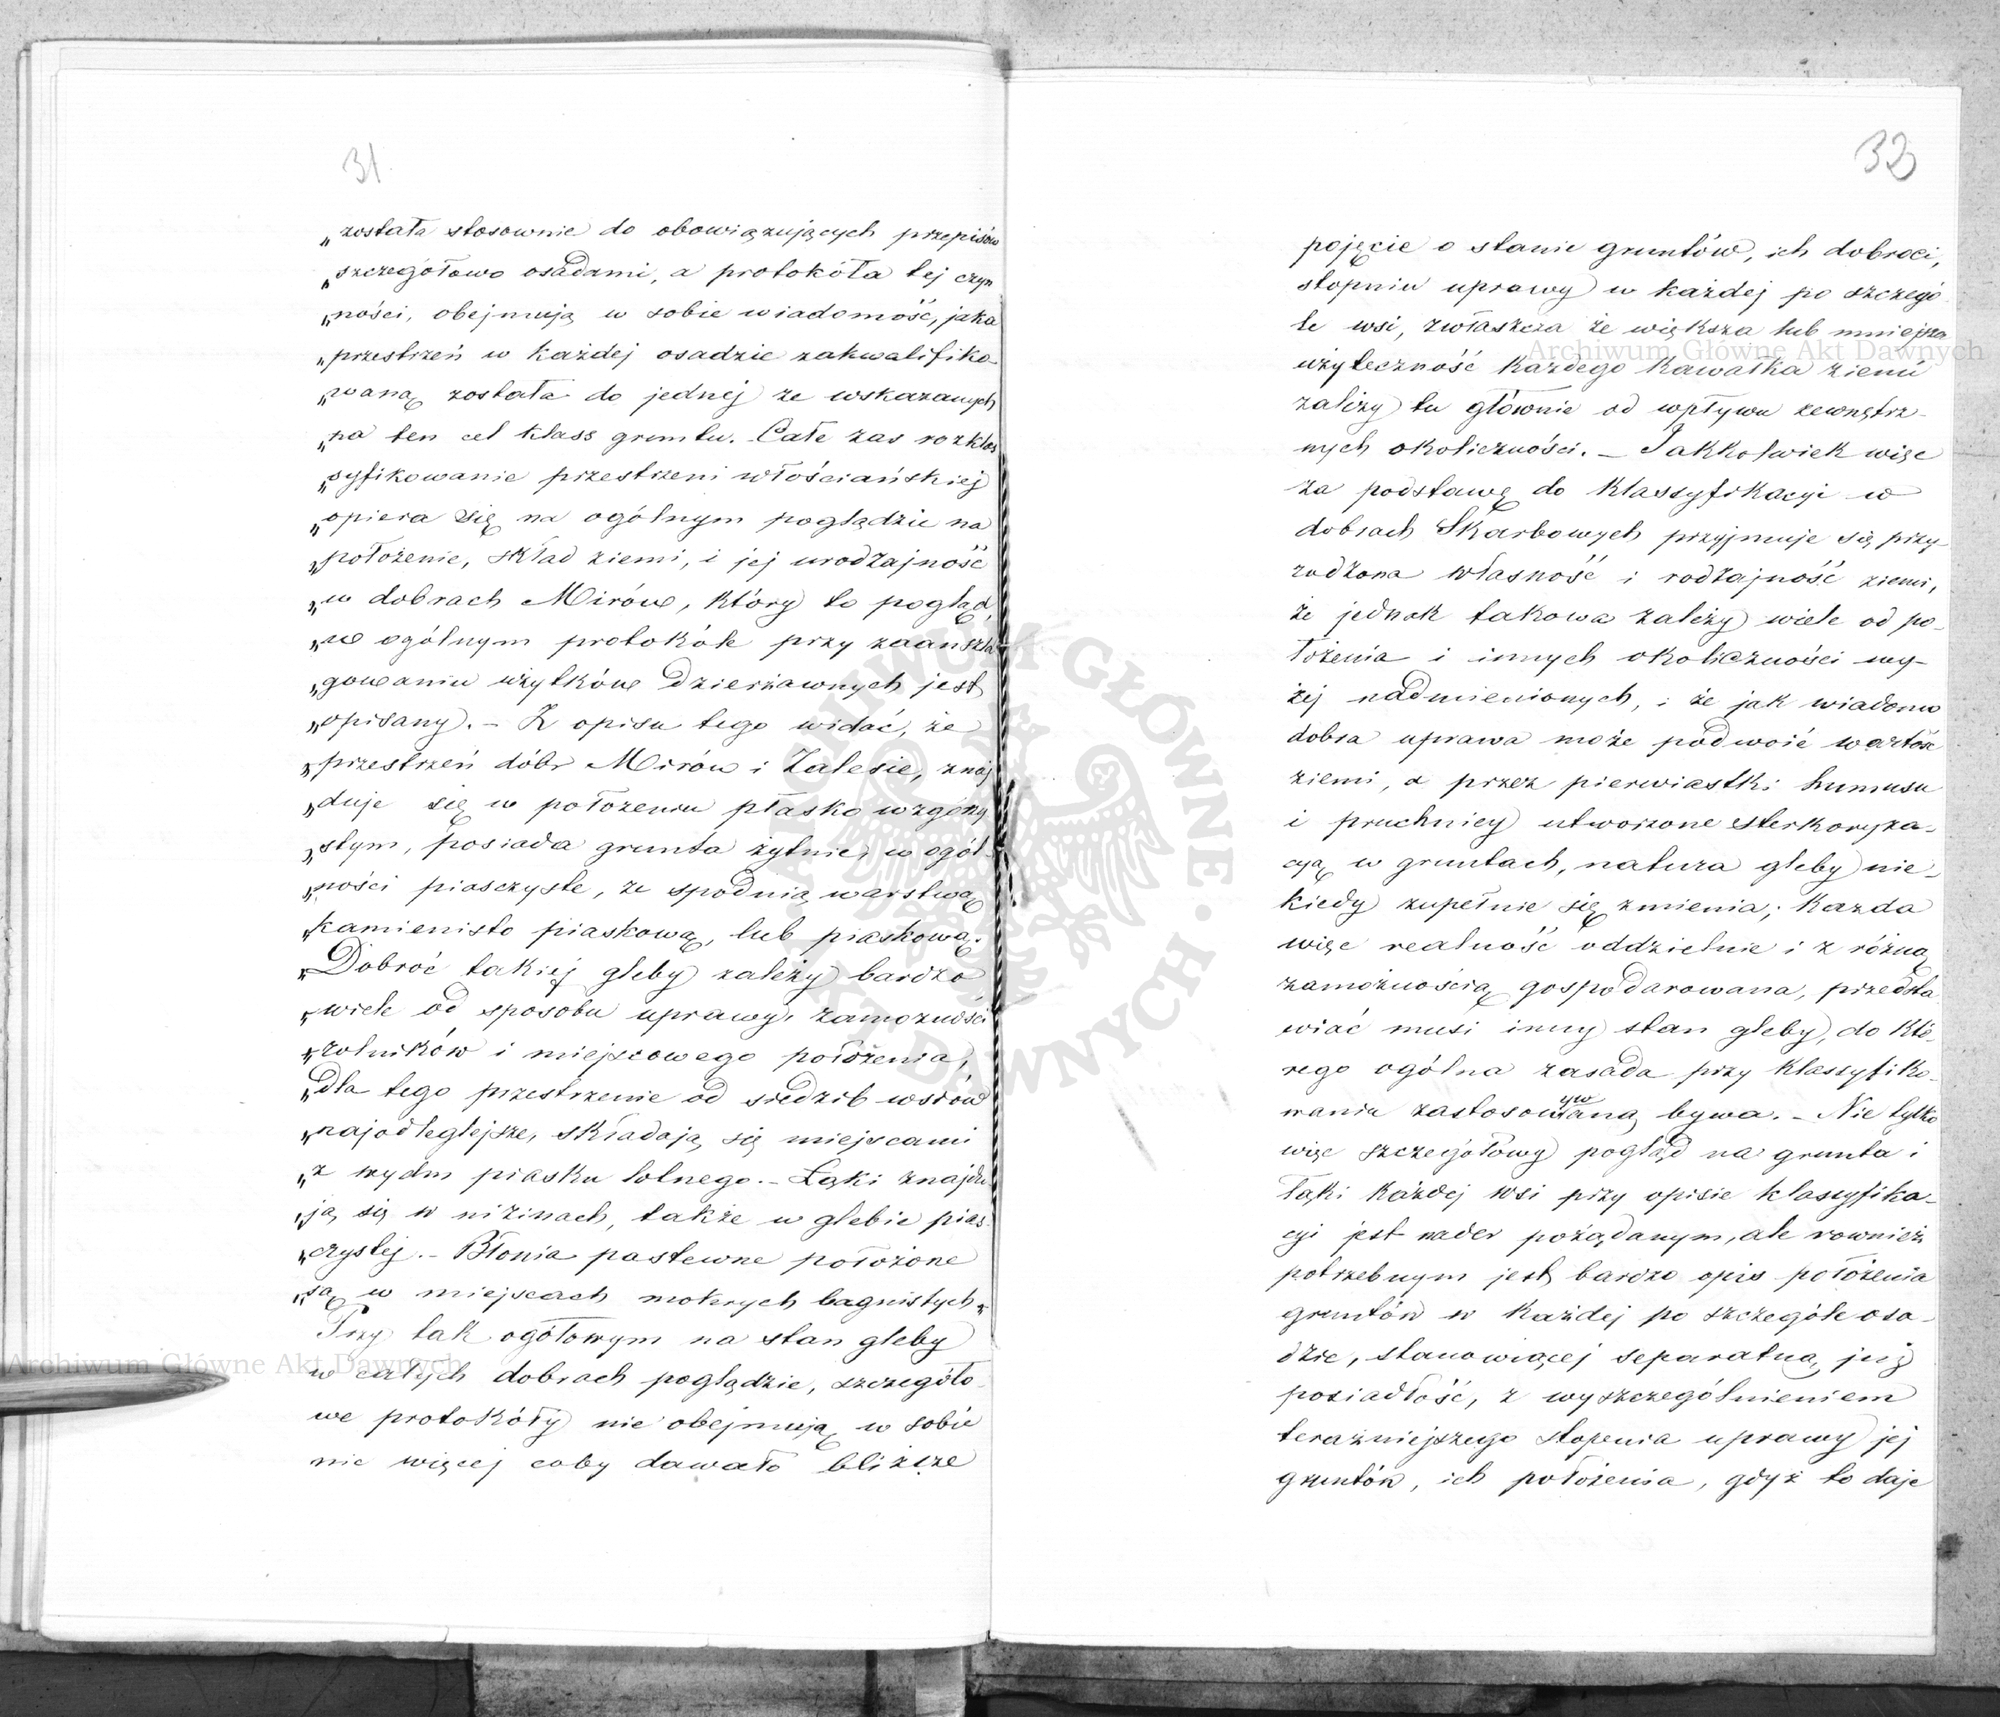 31
„została stosownie do obowiązujących przepisów
„szczegółowo osadami, a protokóła tej czyn
„ności, obejmują w sobie wiadomość, jaka
„przestrzeń w każdej osadzie zakwalifiko-
„waną została do jednej ze wskazanych
„na ten cel klass gruntu. Całe zas rozklas
„syfikowanie przestrzeni włościańskiej
„opiera się na ogólnym poglądzie na
„położenie, skład ziemi, i jej urodzajność
„w dobrach Mirów, który to pogląd,
„w ogólnym protokóle przy zaanszla
„gowaniu użytków dzierżawnych jest
„opisany. – Z opisu tego widać, że
„przestrzeń dóbr Mirów i Zalesie, znaj
„duje się w położeniu płasko wzgórzy
„stym, posiada grunta żytnie, w ogól-
„ności piasczyste, ze spodnią warstwą
„kamienisto piaskową, lub piaskową.
„Dobroć takiej gleby zależy bardzo
„wiele od sposobu uprawy, zamożności
„rolników i miejscowego położenia,
„dla tego przestrzenie od siedzib wsiów
„najodleglejsze, składają się miejscami
„z wydm piasku lotnego. – Łąki znajdu
„ją się w nizinach, także w glebie pias
„czystej. – Błonia pastewne położone
„są w miejscach mokrych bagnistych„
Przy tak ogółowym na stan gleby
w całych dobrach poglądzie, szczegóło-
we protokóły nie obejmują w sobie
nic więcej coby dawało bliższe
32
pojęcie o stanie gruntów, ich dobroci,
stopniu uprawy w każdej po szczegó-
le wsi, zwłaszcza że większa lub mniejsza
użyteczność każdego kawałka ziemi
zależy tu głównie od wpływu zewnętrz-
nych okoliczności. – Jakkolwiek więc
za podstawę do klassyfikacyi w
dobrach Skarbowych przyjmuje się przy-
rodzona własność i rodzajność ziemi,
że jednak takowa zależy wiele od po-
łożenia i innych okoliczności wy-
żej nadmienionych, i że jak wiadomo
dobra uprawa może podwoić wartość
ziemi, a przez pierwiastki humusu
i pruchnicy utworzone sterkoryza-
cyą w gruntach, natura gleby nie-
kiedy zupełnie się zmienia; każda
więc realność oddzielnie i z różną
zamożnością gospodarowana, przedsta
wiać musi inny stan gleby, do któ-
rego ogólna zasada przy klassyfiko-
waniu zastosowywaną bywa. – Nie tylko
więc szczegółowy pogląd na grunta i
łąki każdej wsi przy opisie klassyfika-
cyi jest nader pożądanym, ale rownież
potrzebnym jest bardzo opis położenia
gruntów w każdej po szczególe osa-
dzie, stanowiącej separatną już
posiadłość, z wyszczególnieniem
teraźniejszego stopnia uprawy jej
gruntów, ich położenia, gdyż to daje
Archiwum Główne Akt Dawnych
Archiwum Główne Akt Dawnych
ARCHIWUM GŁÓWNE AKT DAWNYCH